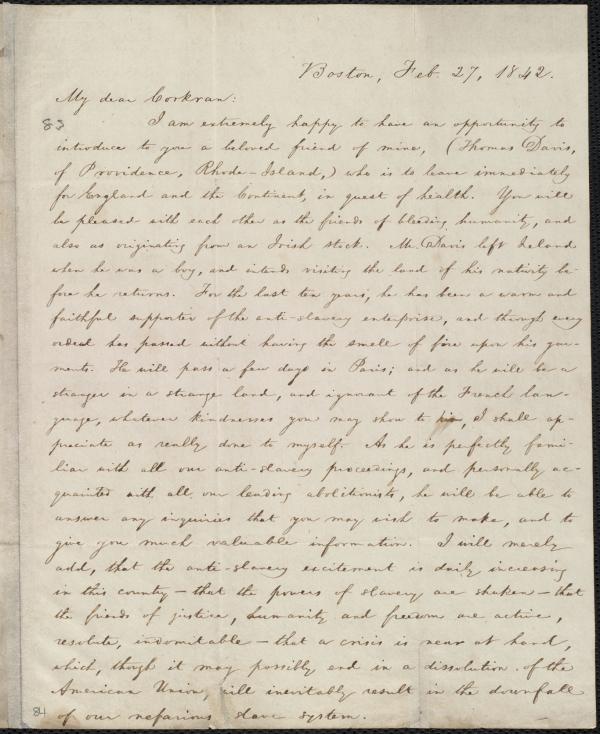 Boston, Feb. 27, 1842.
My dear Corkran:
83
I am extremely happy to have an opportunity to
introduce to you a beloved friend of mine, (Thomas Davis,
of Providence, Rhode-Island,) who is to leave immediately
for England and the Continent, in quest of health. You will
be pleased with each other as the friends of bleeding humanity, and
also as originating from an Irish stock. Mr. Davis left Ireland
when he was a boy, and intends visiting the land of his nativity be-
fore he returns. For the last ten years, he has been a warm and
faithful supporter of the anti-slavery enterprise, and through every
ordeal has passed without having the smell of fire upon his gar-
ments. He will pass a few days in Paris; and as he will be a
stranger in a strange land, and ignorant of the French lan-
guage, whatever kindnesses you may show to him, I shall ap-
preciate as really done to myself. As he is perfectly fami-
liar with all our anti-slavery proceedings, and personally ac-
quainted with all our leading abolitionists, he will be able to
answer any inquiries that you may wish to make, and to
give you much valuable information. I will merely
add, that the anti-slavery excitement is daily increasing
in this country – that the powers of slavery are shaken – that
the friends of justice, humanity and freedom are active,
resolute, indomitable – that a crisis is near at hand,
which, though it may possibly end in a dissolution of the
American Union, will inevitably result in the downfall
of our nefarious slave system.
84